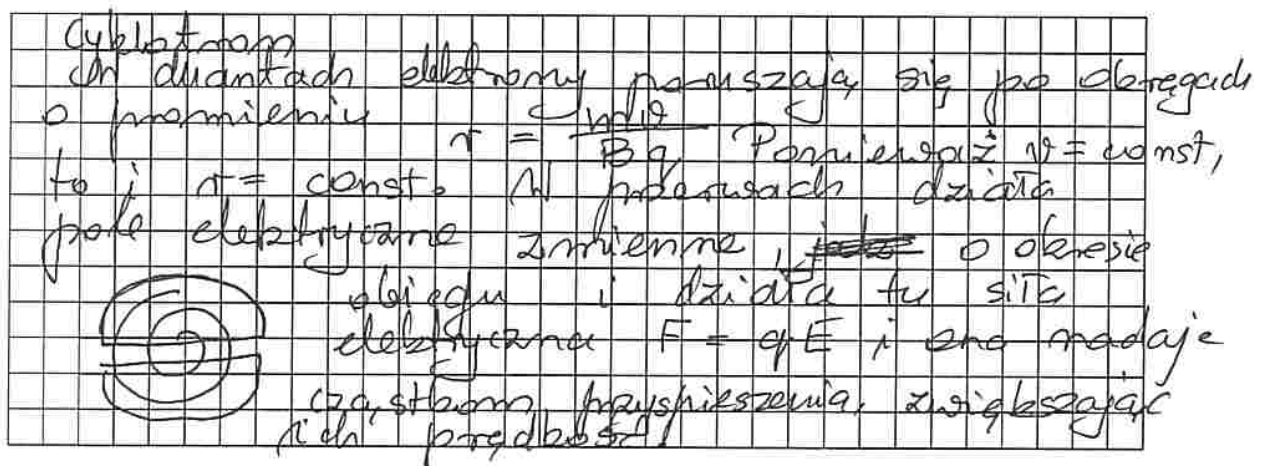 Cyklotron
W duantach elektrony poruszają się po okręgach
o promieniu r = mv / Bq Ponieważ v = const,
to i r = const. W przerwach działa
pole elektryczne zmienne, o okresie
obiegu i działa tu siła
elektryczna F = qE i ona nadaje
cząstkom przyspieszenia, zwiększając
ich prędkość.